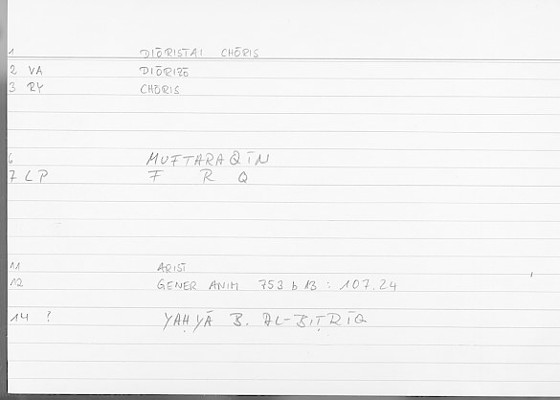 1 DIŌRISTAI CHŌRIS
2 VA DIŌRIZŌ
3 RY CHŌRIS
6 MUFTARAQĪN
7 LP F R Q
11 ARIST
12 GENER ANIM 753 b 13 : 107.24
14 ? YAḤYĀ B. AL-BIṬRĪQ